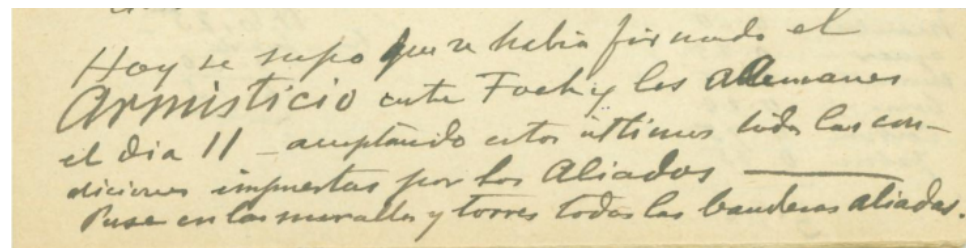 Hoy se supo que se habia firmado el
Armisticio entre Foch y los Allemanes
el dia 11 _ aceptando estos ultimos todas las con-
diciones impuestas por los Aliados ———
Puse en las murallas y torres todas las banderas aliadas.